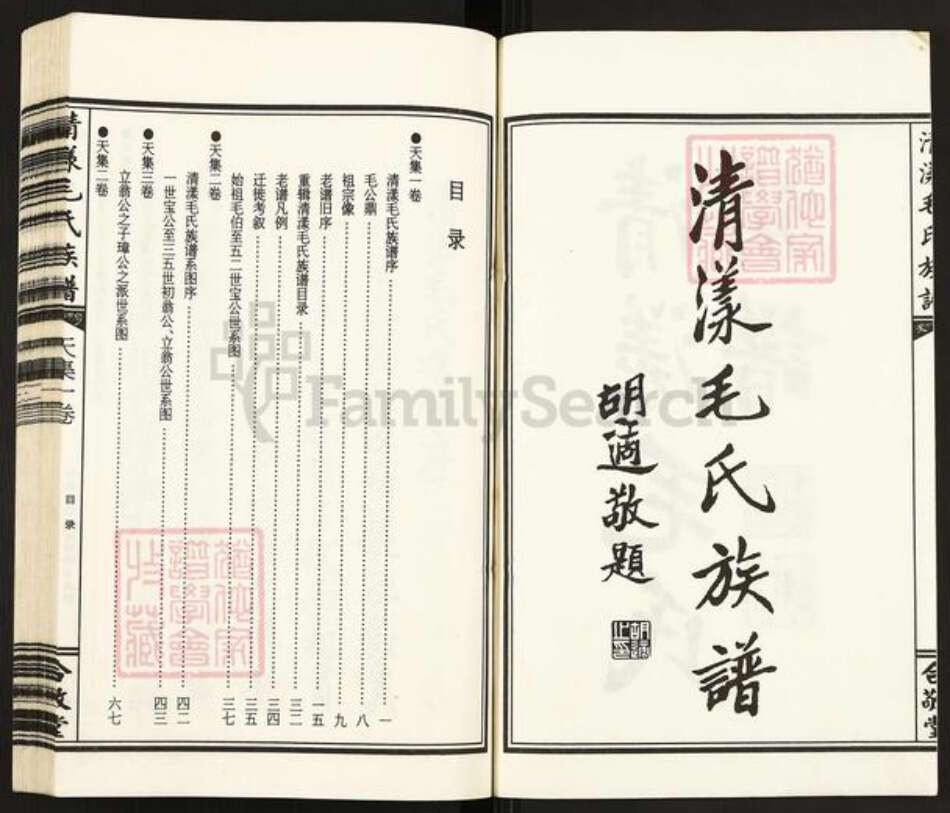 清漾毛氏族譜
胡適敬題
合敬堂
目录
●天集一卷
清漾毛氏族谱序 一
毛公鼎 八
祖宗像 九
老谱旧序 一五
重辑清漾毛氏族谱目录 三二
老谱凡例 三四
迁徙考叙 三五
●天集二卷
始祖毛伯至五二世宝公世系图 三七
清漾毛氏族谱系图序 四二
●天集三卷
一世宝公至三五世初翁公、立翁公世系图 四三
立翁公之子璋公之派世系图 六七
●天集二卷
清漾毛氏族譜
天集一卷
目录
合敬堂
FamilySearch